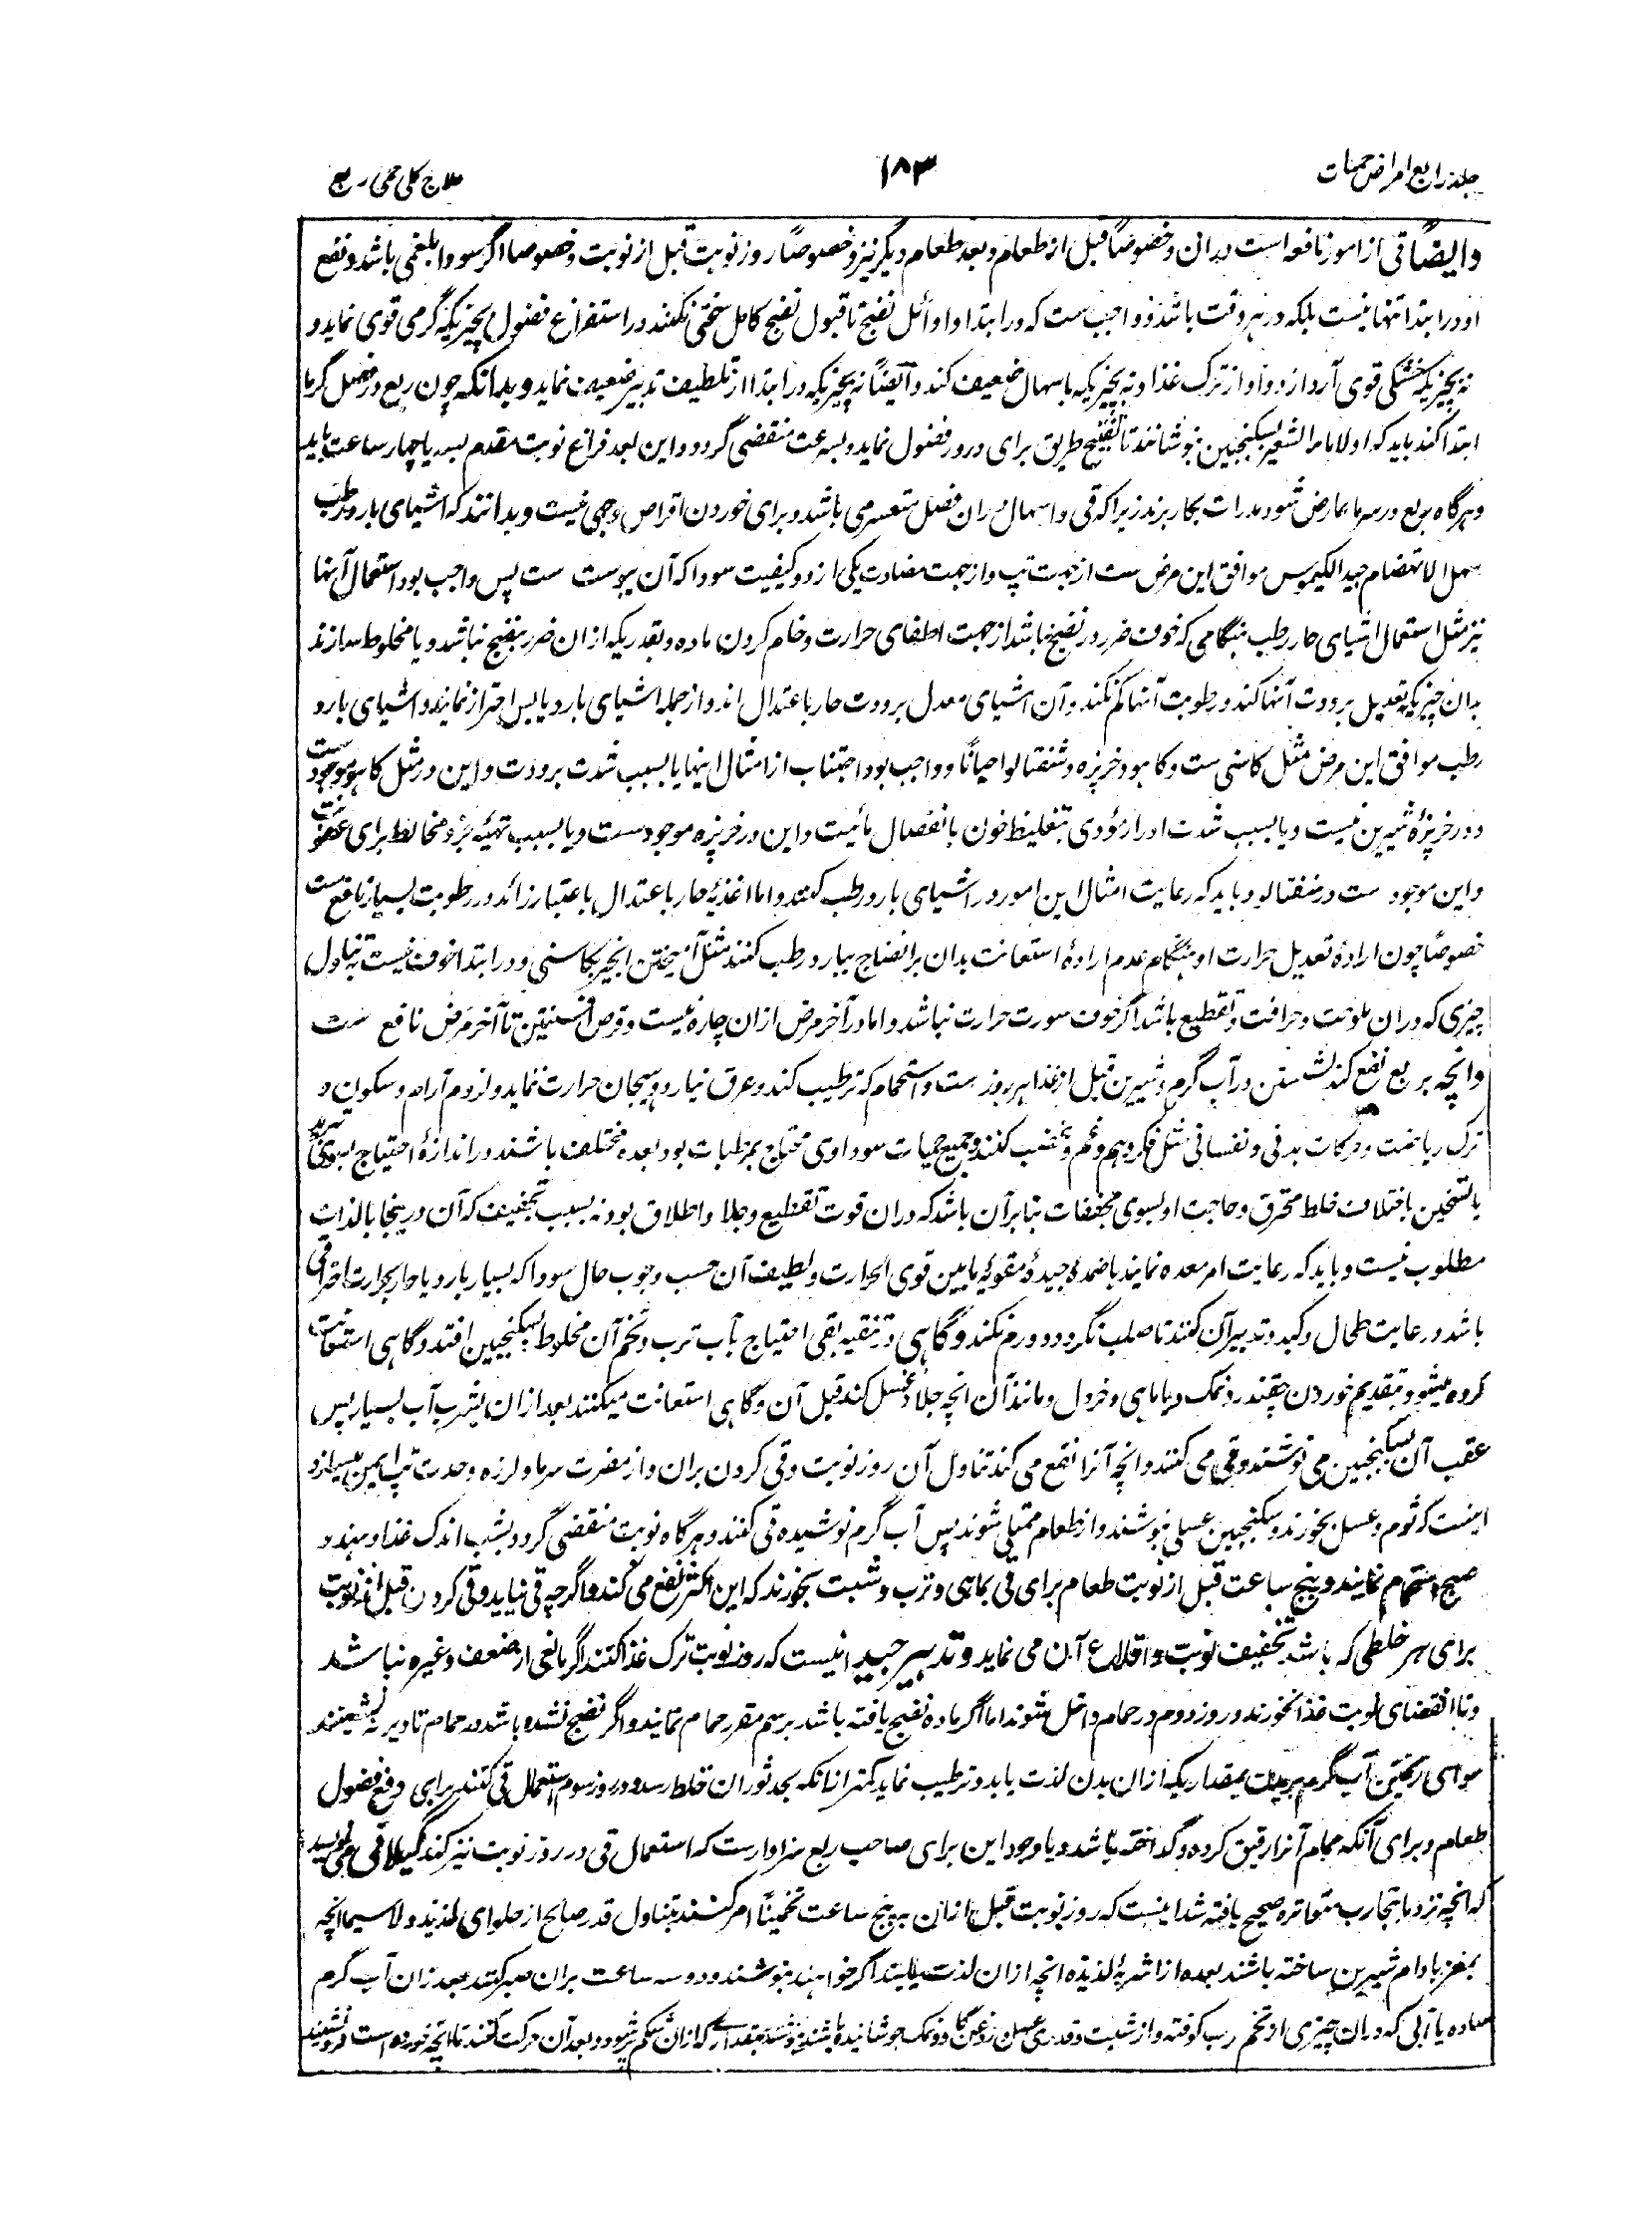 جلد رابع امراض حمیات
۱۸۳
علاج کلی حمی ربع
وایضاً قی از امور نافعه است دران و خصوصاً قبل از طعام و بعد طعام دیگر نیز و خصوصاً روز نوبت قبل از نوبت و خصوصا اگر سودا بلغمی باشد و نفع
او در ابتدا تنها نیست بلکه در هر وقت باشد و واجب ست که در ابتدا و اوائل نضج تا قبول نضج کامل سختی نکنند در استفراغ فضول بچیزیکه گرمی قوی نماید و
نه بچیزیکه خشکی قوی آرد از دوا و از ترک غذا و نه بچیزیکه باسهال ضعیف کند و آیضاً نه بچیزیکه در ابتدا از تلطیف تدبیر ضعیف نماید و بدانکه چون ربع در فصل گرما
ابتدا کند باید که اولا ماء الشعیر بسکنجبین بنوشانند تا تفتیح طریق برای درور فضول نماید و بسرعت منقضی گردد و این بعد فراغ نوبت مقدم بسه یا چهار ساعت باید
و هرگاه ربع در سرما عارض شود مدرات بکار برند زیرا که قی و اسهال دران فصل متعسر می باشد و برای خوردن اقراص وجهی نیست و بدانند که اشیای بارد رطب
سهل الانهضام جید الکیموس موافق این مرض ست از جهت تپ و از جهت مضادت یکی از دو کیفیت سودا که آن یبوست ست پس واجب بود استعمال آنها
نیز مثل استعمال اشیای حار رطب هنگامی که خوف ضرر در نضج نباشد از جهت اطفای حرارت و خام کردن ماده و بقدریکه ازان ضرر بنضج نباشد و یا مخلوط سازند
بدان چیزیکه تعدیل برودت آنها کند و رطوبت آنها کم نکند و آن اشیای معدل برودت حار باعتدال اند و از جمله اشیای بارد یابس احتراز نمایند و اشیای بارد
رطب موافق این مرض مثل کاسنی ست و کاهو و خربزه و شفتالو احیاناً و واجب بود اجتناب از امثال اینها یا بسبب شدت برودت و این در مثل کاهو موجود ست
و در خربزهٔ شیرین نیست و یا بسبب شدت ادرار مؤدی بتغلیظ خون بانفصال مائیت و این در خربزه موجودست و یا بسبب تهیئه جزو مخالط برای عفونت
و این موجود ست در شفتالو و باید که رعایت امثال این امور در اشیای بارد رطب کنند و اما اغذیهٔ حار باعتدال باعتبار زائد در رطوبت بسیار نافع ست
خصوصاً چون ارادهٔ تعدیل حرارت او هنگام عدم ارادهٔ استعانت بدان بر انضاج ببارد رطب کنند مثل آمیختن انجیر بکاسنی و در ابتدا خوف نیست بتناول
چیزی که دران ملوحت و حرافت و تقطیع باشد اگر خوف سورت حرارت نباشد و اما در آخر مرض ازان چاره نیست و قرص افسنتین تا آخر مرض نافع ست
وانچه بربع نفع کند نشستن در آب گرم و شیرین قبل از غذا هر روز ست و استحمام که ترطیب کند و عرق نیارد و هیجان حرارت ننماید و لزوم آرام و سکون و
ترک ریاضت و حرکات بدنی و نفسانی مثل فکر و هم و غم و غضب کنند و جمیع حمیات سوداوی محتاج بمرطبات بود بعده مختلف باشند در اندازهٔ احتیاج بسوی تبرید
یا تسخین باختلاف خلط محترق و حاجت او بسوی مجففات بنابر آن باشد که دران قوت تقطیع و جلا و اطلاق بود نه بسبب تجفیف که آن درینجا بالذات
مطلوب نیست و باید که رعایت امر معده نمایند باضمدهٔ جیدهٔ مقویه مابین قوی الحرارت و لطیف آن حسب وجوب حال سودا که بسیار بارد یا حار بحرارت احتراقی
باشد و رعایت طحال و کبد و تدبیر آن کنند تا صلب نگردد و ورم نکند و گاهی در تنقیه بقی احتیاج بآب ترب و تخم آن مخلوط بسکنجبین افتد و گاهی استعانت
کرده میشود بتقدیم خوردن چقندر و نمک و ماهی و خردل و مانند آن انچه جلا و غسل کند قبل آن و گاهی استعانت میکنند بعد ازان بشرب آب بسیار پس
عقب آن سکنجبین می نوشند و قی می کنند و انچه آنرا نفع می کند تناول آن روز نوبت و قی کردن بران و از مضرت سرما و لرزه و حدت تپ ایمن میسازد
اینست که ثوم و عسل بخورند و سکنجبین عسلی بنوشند و از طعام ممتلی شوند پس آب گرم نوشیده قی کنند و هرگاه نوبت منقضی گردد بشب اندک غذا دهند و
صبح استحمام نمایند و پنج ساعت قبل از نوبت طعام برای قی بماهی و ترب و شبت بخورند که این اکثر نفع می کند و اگرچه قی نیاید و قی کردن قبل از نوبت
برای هر خلطی که باشد تخفیف نوبت و اقلاع آن می نماید و تدبیر جید انیست که روز نوبت ترک غذا کنند اگر مانعی از ضعف و غیره نباشد
و تا انقضای نوبت غذا نخورند و روز دوم در حمام داخل شوند اما اگر ماده نضج یافته باشد برسم مقرر حمام نمایند و اگر نضج نشده باشد در حمام تا دیر نه نشینند
سوای ریختن آب گرم بر بدن بمقداریکه ازان بدن لذت یابد و ترطیب نماید کمتر ازانکه بحد ثوران خلط رسد و روز سوم استعمال قی کنند برای دفع فضول
طعام و برای آنکه حمام آنرا رقیق کرده و گداخته باشد و یا وجود این برای صاحب ربع سزاوار ست که استعمال قی در روز نوبت نیز کند گیلانی می نویسد
که انچه نزد ما بتجارب متواتره صحیح یافته شد اینست که روز نوبت قبل ازان به پنج ساعت تخمیناً امر کنند بتناول قدر صالح از حلوای لذیذ و لاسیما انچه
بمغز بادام شیرین ساخته باشند بعده از اشربهٔ لذیذه انچه ازان لذت یابند اگر خواهند بنوشند و دو سه ساعت بران صبر کنند بعد ازان آب گرم
ساده یا آبی که دران چیزی از تخم ترب کوفته و از شبت و قدری عسل و نمک جوشانیده باشند بنوشند بمقداریکه ازان شکم پر شود و بعد آن حرکت کنند تا انچه خورده است